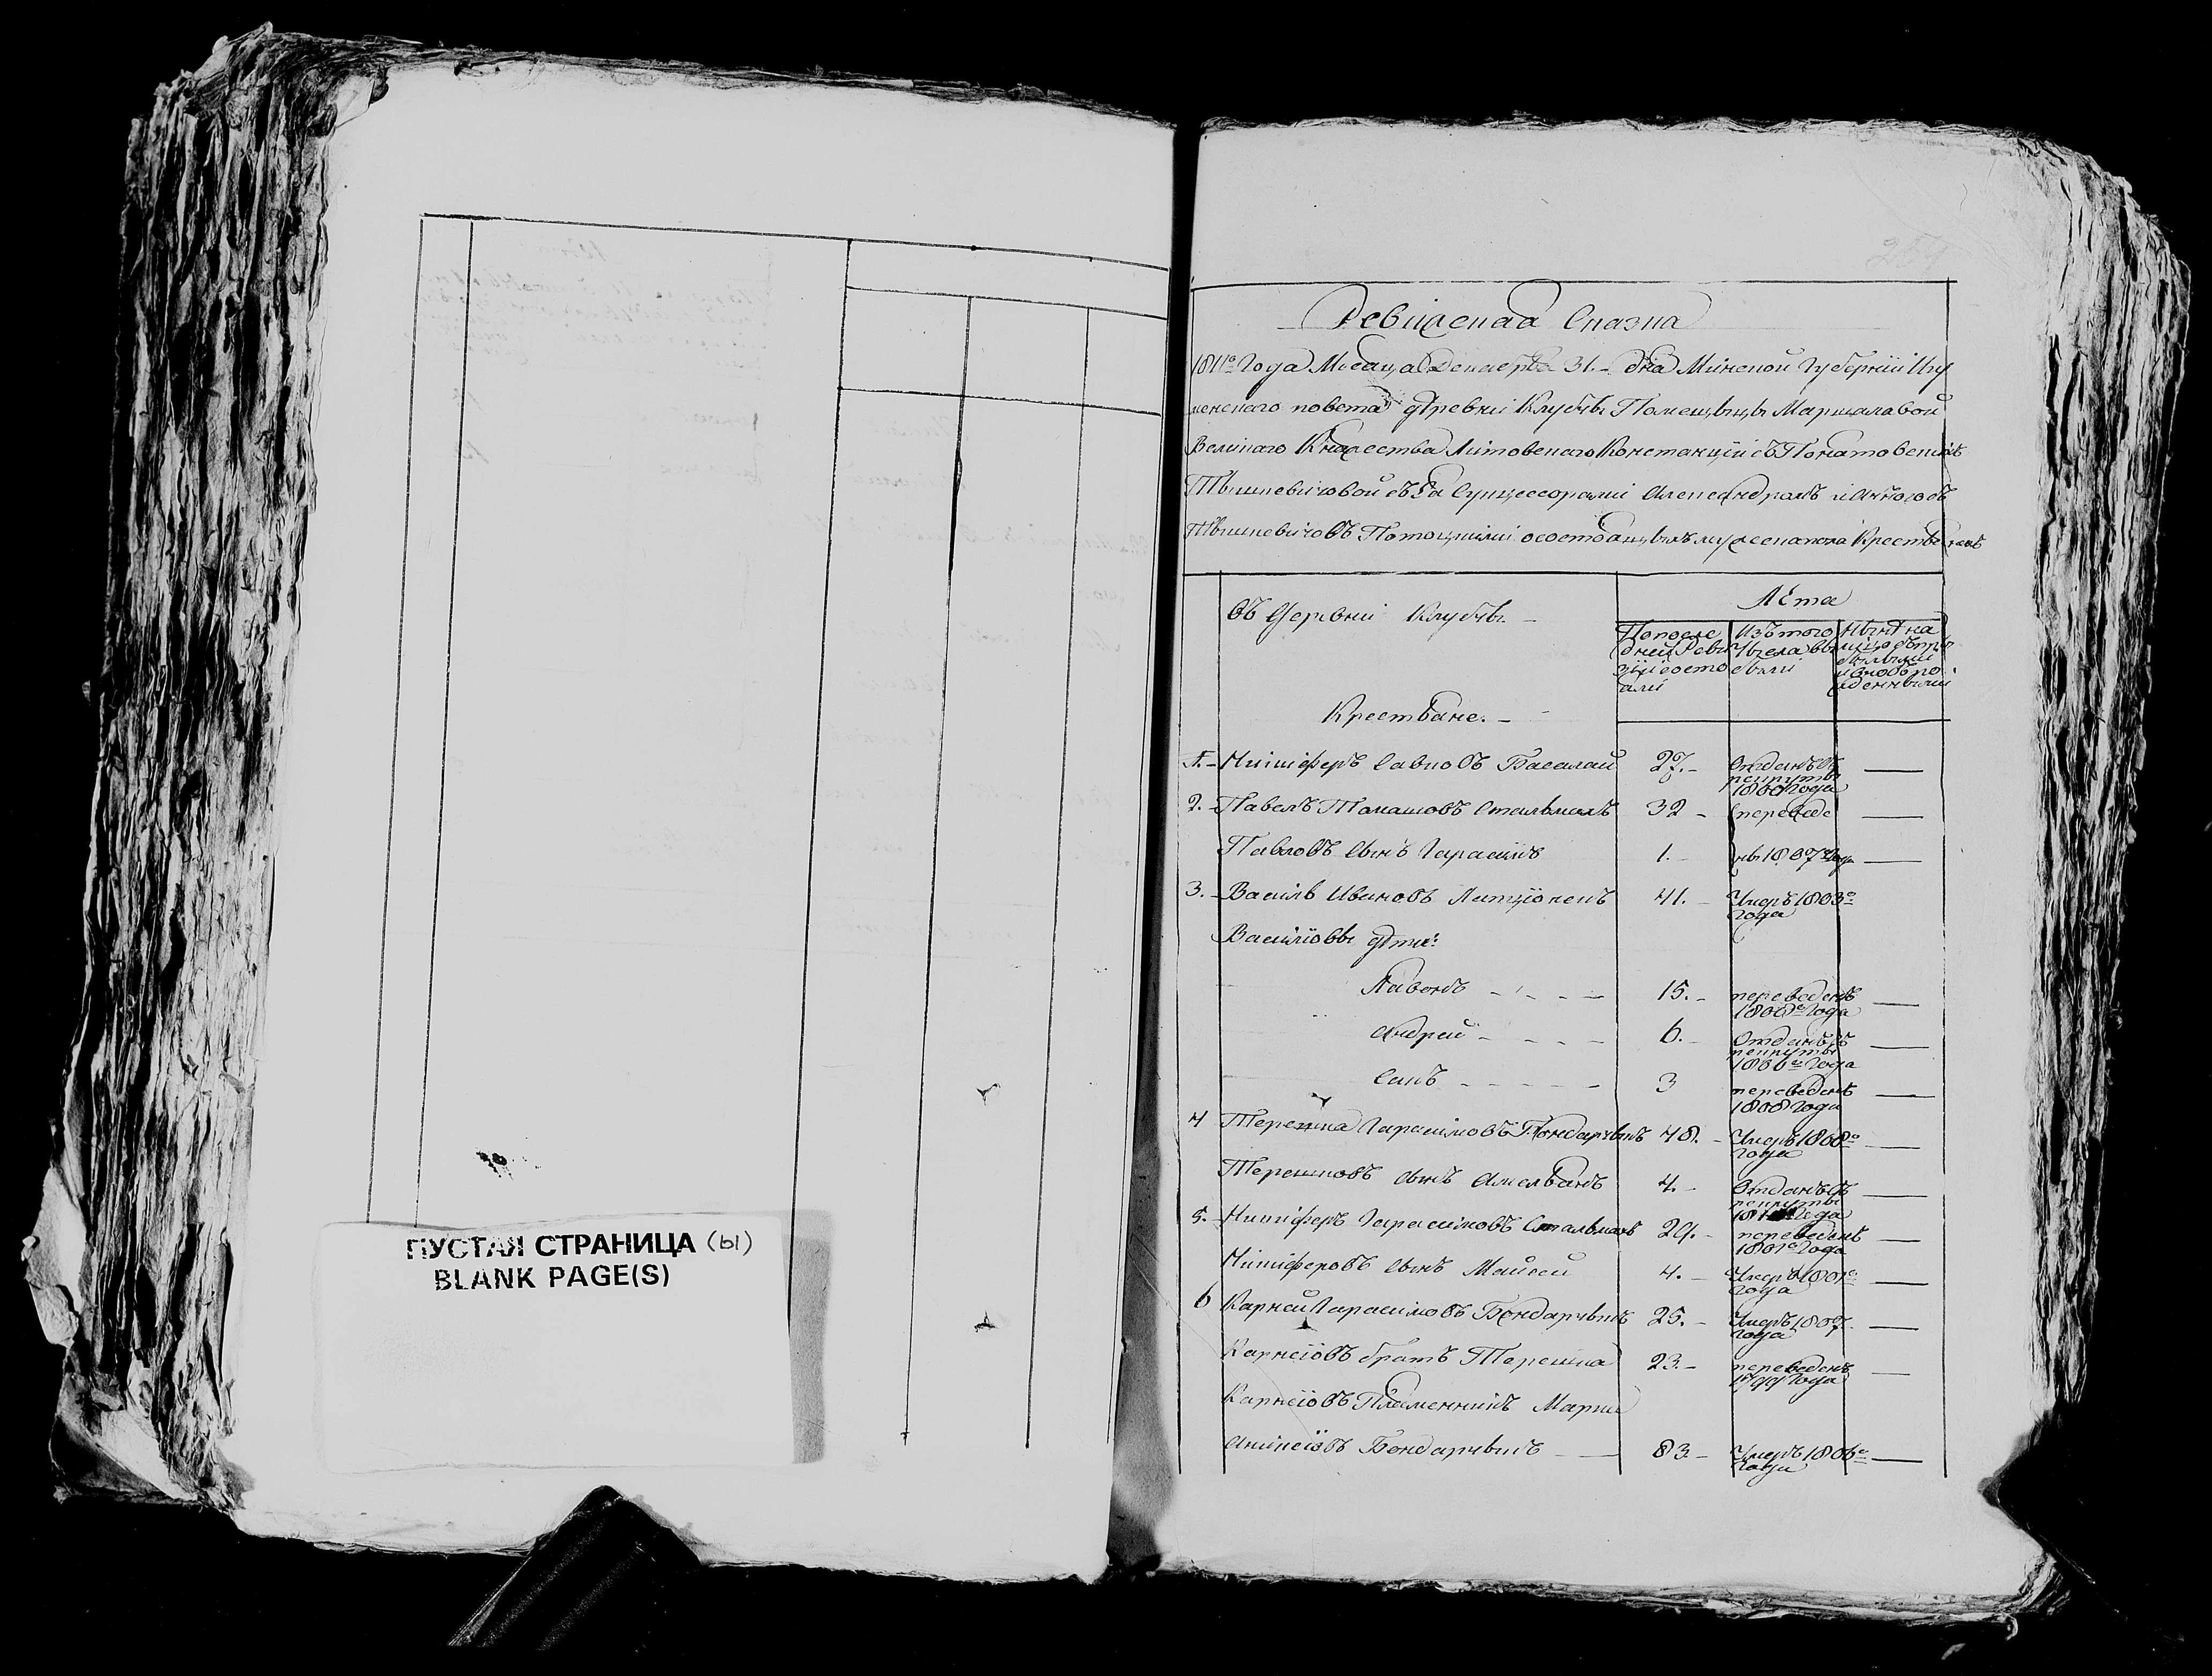 ПУСТАЯ СТРАНИЦА (ы)
BLANK PAGE(S)
Ревизская Сказка
1811го Года Месяца Декабря 31. дня Минской Губернии Игу
менского повета деревни Клубчы Помещыцы Маршалавой
Великаго Княжества Литовскаго Констанции съ Понятовскихъ
Тышкевичовой съ Ея Сукцессорами Александромъ
Тышкевичовъ Потоцкими осостоящыхъ мужескапола Крестьянехъ
Въ Деревни Клубчы
Лета
По последней Ревизии состояли
Изътого Числа выбыли
Ныне налицо
Крестьяне.
1. Никиферъ Савковъ Басалай 27. Отданъ въ рекруты 1800 Года —
2. Павелъ Томашовъ Стельмахъ 32 переведе
Павловъ Сынъ Гарасимъ 1. ны 1807 Года —
3. Василь Ивановъ 41. Умеръ 1803го Года
Васильовы дети:
15. переведенъ 1806го Года —
Андрей 6. Отданъ въ рекруты 1806го Года —
Сакъ 3 переведенъ 1808 Года —
4 Терешка Гарасимовъ Бондарчыкъ 48. Умеръ 1808го Года —
Терешковъ Сынъ Амельянъ 4. Отданъ въ рекруты Года —
5. Никиферъ Гарасимовъ Стальмахъ 29. переведенъ 1801го Года —
Никиферовъ Сынъ Майсей 4. Умеръ 1801го Года —
6 Карней Гарасимовъ Бондарчыкъ 25. Умеръ 1807. Года —
Карнеіовъ братъ Терешка 23. переведенъ 1799 Года —
Карнеіовъ Племенникъ Марка
Бондарчыкъ 83. Умеръ 1806го Года —